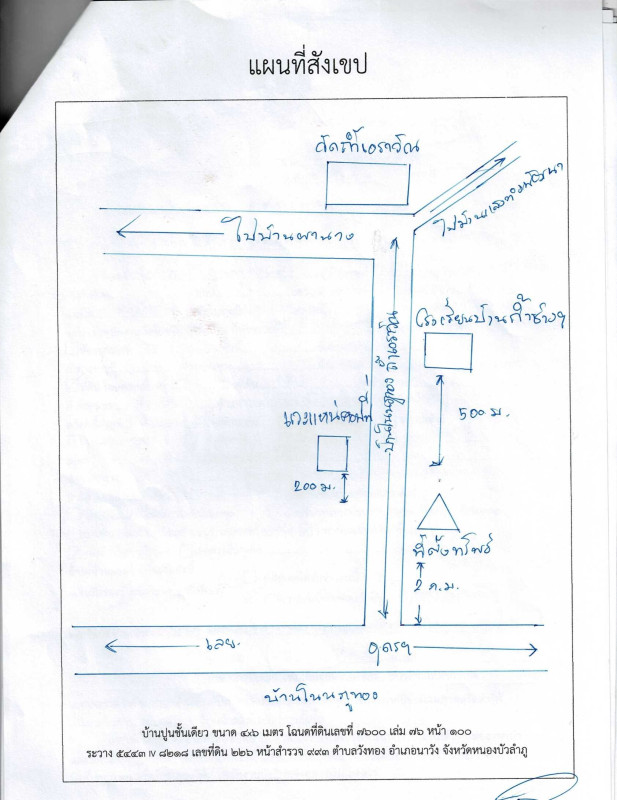 แผนที่สังเขป
วัดถ้ำเอราวัณ
ไปบ้านผานาง
ไปบ้าน
โรงเรียนบ้านถ้ำช้างฯ
500 ม.
200 ม.
ที่ตั้งทรัพย์
2 ก.ม.
เลย
อุดรฯ
บ้านโนนภูทอง
บ้านปูนชั้นเดียว ขนาด ๔x๖ เมตร โฉนดที่ดินเลขที่ ๗๖๐๐ เล่ม ๗๖ หน้า ๑๐๐
ระวาง ๕๔๔๓ IV ๘๒๑๘ เลขที่ดิน ๒๒๖ หน้าสำรวจ ๙๙๓ ตำบลวังทอง อำเภอนาวัง จังหวัดหนองบัวลำภู